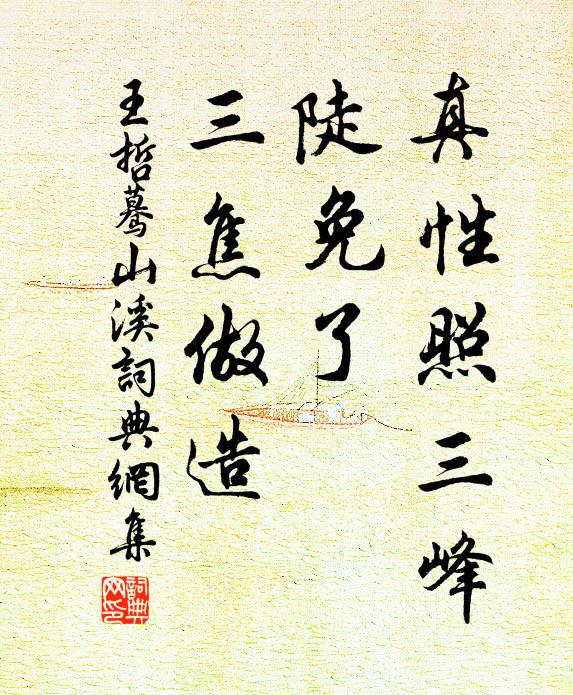 真性照三峰
陡免了
三焦做造
王哲蓦山溪詞典網集
詞典
网印